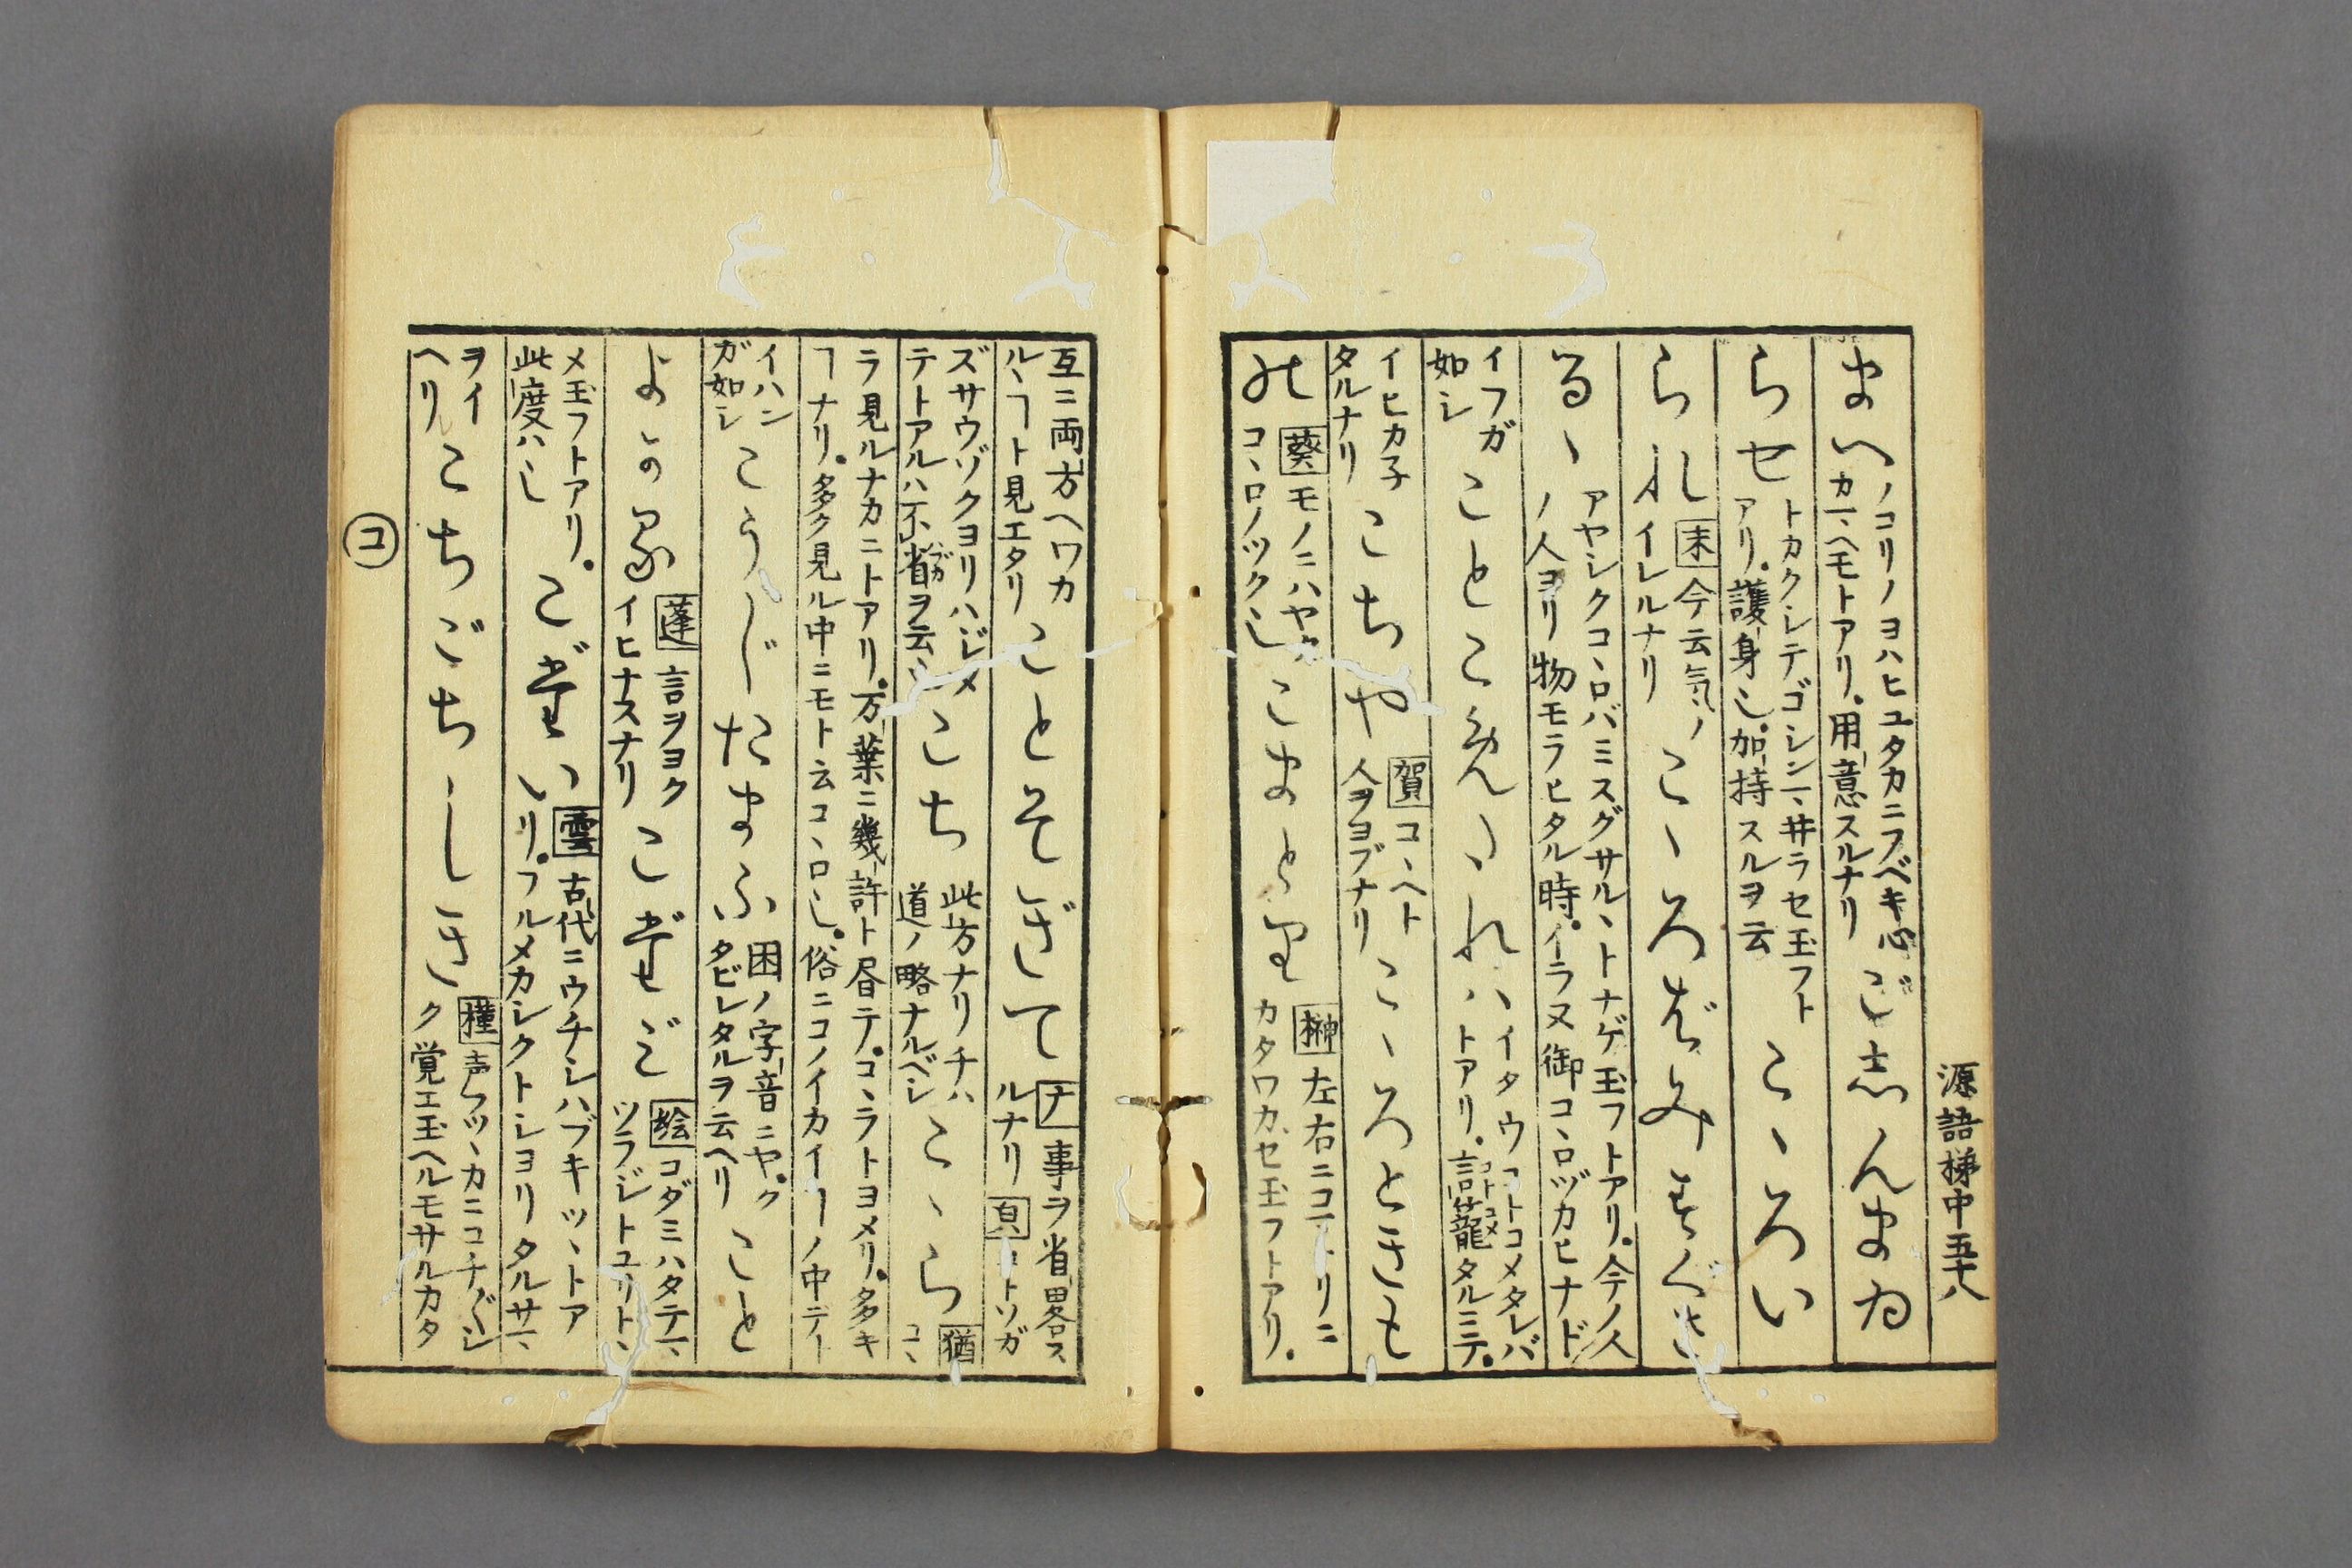 源語梯中五十八
まへノコリノヨハヒユタカニフベキ心
カマヘモトアリ。用意スルナリ
ごしんまゐ
らせトカクシテゴシンマ井ラセ玉フト
アリ。護身シ。加持スルヲ云
こゝろい
られ末今云気ノ
イレルナリ
こゝろばみすぐさ
るゝアヤシクコヽロバミスグサルヽトナゲ玉フトアリ。今ノ人
ノ人ヨリ物モラヒタル時。イラヌ御コヽロヅカヒナド
イフガ
如シ
ことこめたれハイタウコトコメタレバ
トアリ。言籠タルミテ。
イヒカ子
タルナリ
こちや賀コヽヘト
人ヲヨブナリ
こゝろときも
の葵モノニハヤク
コヽロノツクシ
こまとり榊左右ニコマトリニ
カタワカセ玉フトアリ。
互ニ両方ヘワカ
ルヽヿト見エタリ
ことそぎてナ事ヲ省畧ス
ルナリ
ズサウゾクヨリハジメ
テトアルハ不省ヲ云シ
こち此方ナリチハ
道ノ略ナルベシ
こゝら猶コヽ
ラ見ルナカニトアリ。万葉ニ幾許ト昏テ。コヽラトヨメリ。多キ
ヿナリ。多ク見ル中ニモト云コヽロシ。俗ニコノイカイ
イハン
ガ如シ
こうじたまふ困ノ字音ニヤ。ク
タビレタルヲ云ヘリ
こと
よかる蓬言ヲヨク
イヒナスナリ
こだま絵コダミハタテマ
ツラジト
メ玉フトアリ。
此度ハシ
こだい雲古代ニウチシハブキツヽトア
リ。フルメカシクトシヨリタルサマ
ヲイ
ヘリ
こちごちしき槿声ツヽカニコチ〴〵シ
ク覚エ玉ヘルモサルカタ
コ